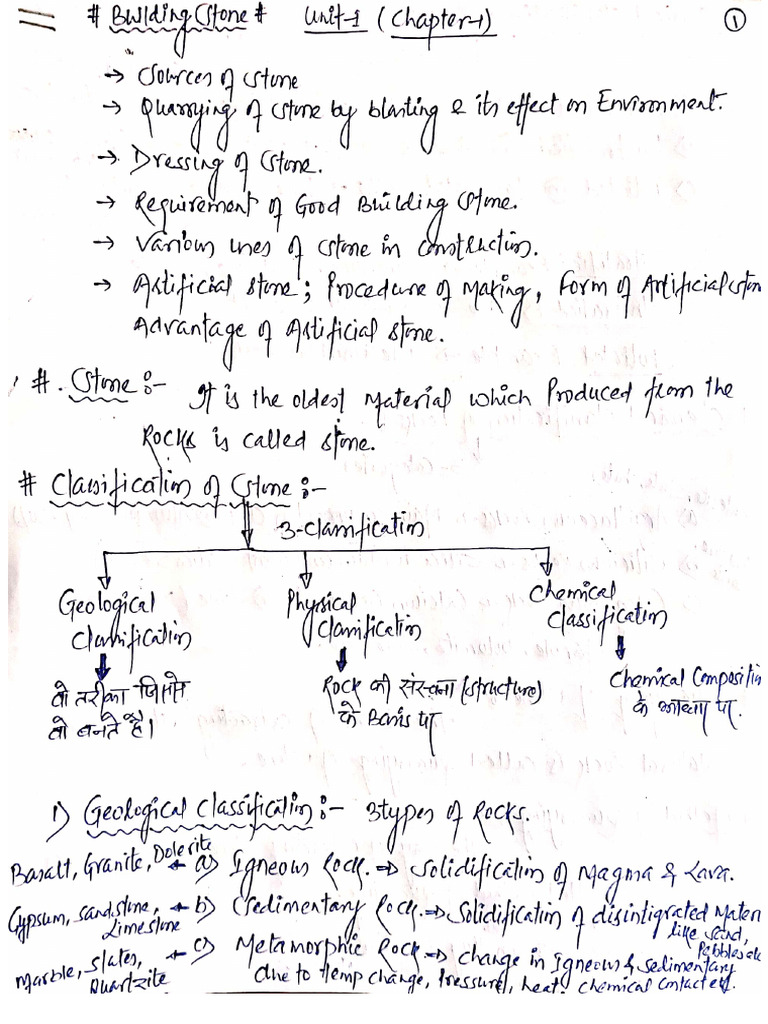 # Building Stone # Unit-1 (Chapter-1) 1
→ Sources of Stone
→ Quarrying of Stone by blasting & its effect on Environment.
→ Dressing of Stone.
→ Requirement of Good Building Stone.
→ Various uses of Stone in construction.
→ Artificial Stone; Procedure of Making, Form of Artificial Ston
Advantage of Artificial Stone.
#. Stone :- It is the oldest Material which Produced from the
Rocks is called Stone.
# Classification of Stone :-
3-Classification
Geological Physical Chemical
Classification Classification Classification
वो तरीका जिससे Rock की संरचना (structure) Chemical Compositin
वो बनते है। के Basis पर के आधार पर.
1) Geological Classification :- 3 types of Rocks.
Basalt, Granite, Dolerite ← a) Igneous Rock. ⇒ Solidification of Magma & Lava.
Gypsum, Sandstone, ← b) Sedimentary Rock. ⇒ Solidification of disintigrated Materi
Limestone like sand,
Pebbles
Marble, Slates, ← c) Metamorphic Rock ⇒ change in Igneous & sedimentary
Quartzite due to temp change, Pressure, heat, chemical contact